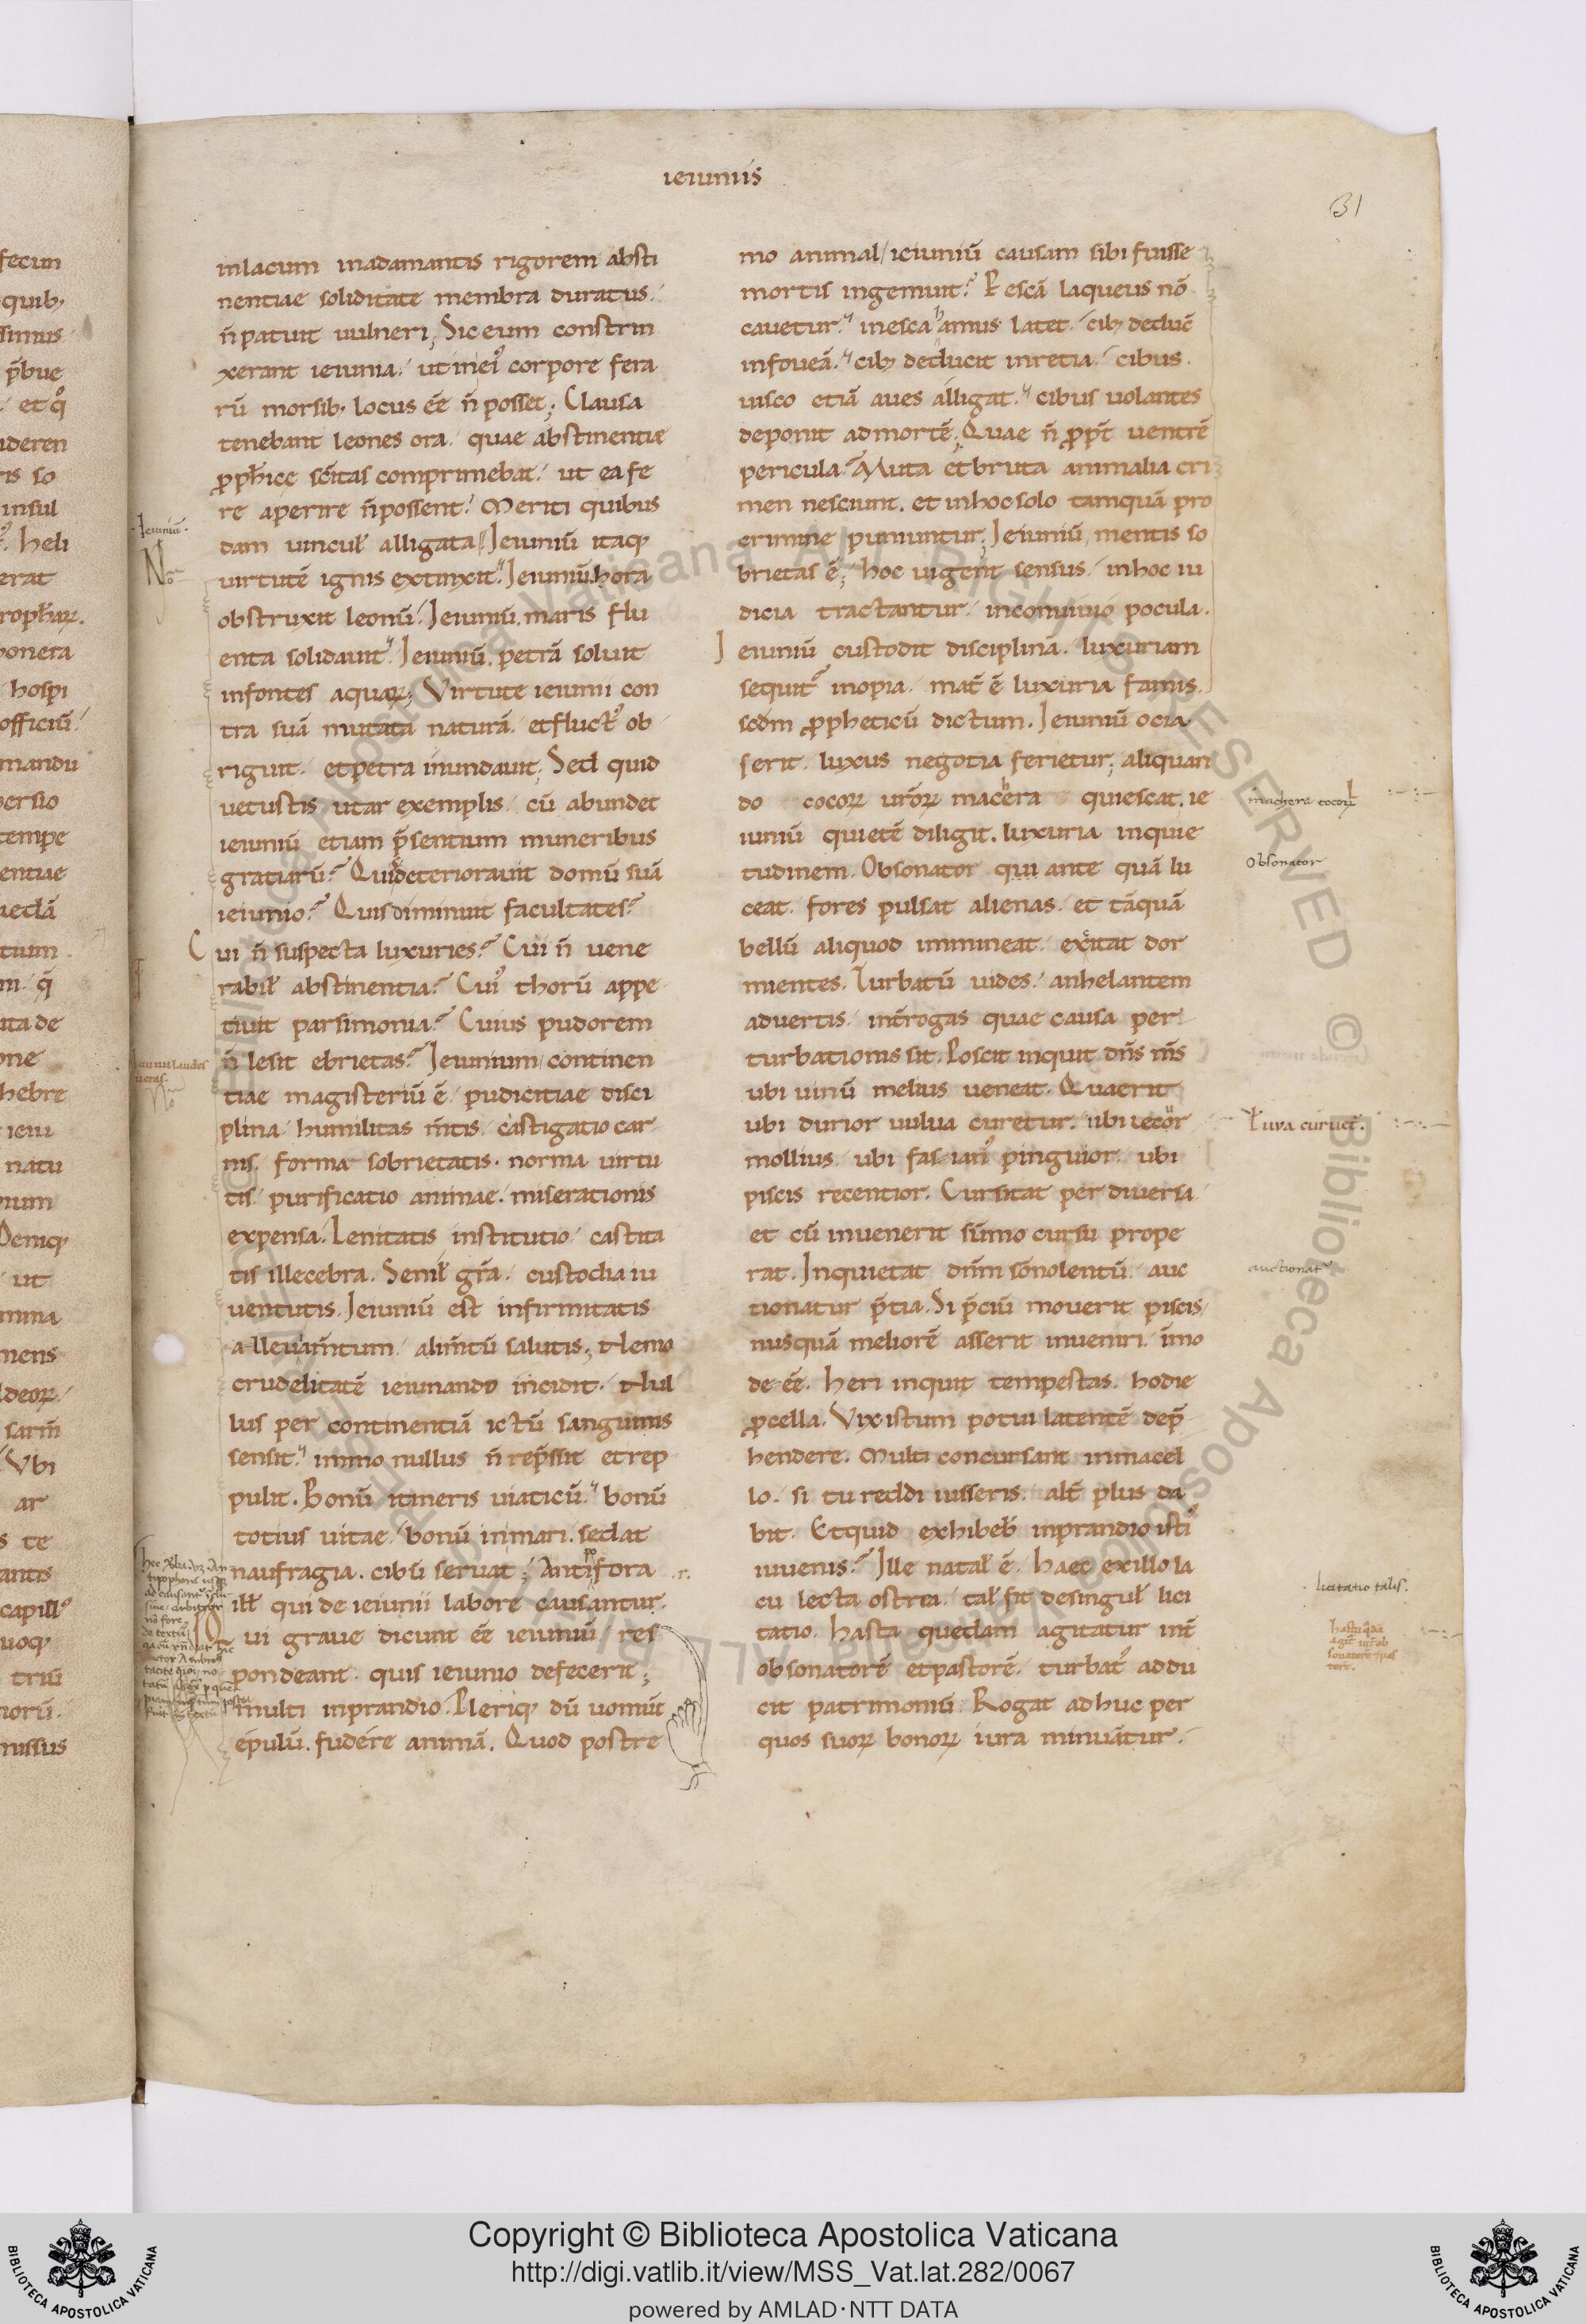 ieiuniis
31
inlacum inadamantis rigorem absti
nentiae soliditate membra duratus.
n̄ patuit uulneri; Sic eum constrin
xerant ieiunia. ut inei᾽ corpore fera
rū morsib; locus ēē n̄ posset; Clausa
tenebant leones ora. quae abstinentiæ
ꝓphicę sc̄itas comprimebat. ut ea fe
re aperire n̄ possent. Meriti quibus
dam uincul̄ alligata. Ieiuniū itaq;
uirtutē ignis extinxit. Ieiuniū hora
obstruxit leonū. Ieiuniū maris flu
enta solidauit. Ieiuniū petrā soluit
infontes aquaꝝ; Virtute ieiunii con
tra suā mutata naturā. et fluct᾽ ob
riguit. et petra inundauit; Sed quid
uetustis utar exemplis. cū abundet
ieiuniū etiam p̄sentium muneribus
gratiarū? Quis deteriorauit domū suā
ieiunio? Quis diminuit facultates?
Cui n̄ suspecta luxuries? Cui n̄ uene
rabil̄ abstinentia? Cui᾽ thorū appe
tiuit parsimonia? Cuius pudorem
n̄ lesit ebrietas? Ieiunium continen
tiae magisteriū ē. pudicitiae disci
plina. humilitas m̄tis. castigatio car
nis. forma sobrietatis. norma uirtu
tis. purificatio animae. miserationis
expensa. Lenitatis institutio. castita
tis illecebra. Senil̄ gr̄a. custodia iu
uentutis. Ieiuniū est infirmitatis
alleuam̄tum. alim̄tū salutis; Nemo
crudelitatē ieiunando incidit. Nul
lus per continentiā ictū sanguinis
sensit. immo nullus n̄ rep̄ssit et rep
pulit. Bonū itineris uiaticū. bonū
totius uitae. bonū in mari. sedat
naufragia. cibū seruat; Antifora
ill̄ qui de ieiunii labore causantur.
Qui graue dicunt ēē ieiuniū. res
pondeant. quis ieiunio defecerit;
multi inprandio. Pleriq; dū uomūt
epulū. fudere animā. Quod postre
mo animal. ieiuniū causam sibi fuisse
mortis ingemuit? P escā laqueus nō
cauetur. inesca hamus latet. cib; deduc̄
infoueā. cib; deducit inretia. cibus
uisco etiā aues alligat. cibus uolantes
deponit admortē. Quae n̄ ꝓpt̄ uentrē
pericula? Muta et bruta animalia cri
men nesciunt. et inhoc solo tamquā pro
crimine puniuntur; Ieiuniū mentis so
brietas ē; hoc uigent sensus. inhoc iu
dicia tractantur. inconuiuio pocula.
Ieiuniū custodit disciplinā. luxuriam
sequit᾽ inopia. mat̄ ē luxuria famis.
scdm ꝓpheticū dictum. Ieiuniū ocia
serit. luxus negotia ferietur; aliquan
do cocoꝝ ur̄oꝝ machera quiescat. ie
iuniū quietē diligit. luxuria inquie
tudinem. Obsonator qui ante quā lu
ceat. fores pulsat alienas. et tāquā
bellū aliquod immineat. excitat dor
mientes. Turbatū uides. anhelantem
aduertis. int̄rogas quae causa per
turbationis sit. Poscit inquit dn̄s m̄s
ubi uinū melius ueneat. Quaerit
ubi durior uulua curetur. ubi iecur
mollius. ubi fasian᾽ pinguior. ubi
piscis recentior. Cursitat per diuersa
et cū inuenerit sūmo cursu prope
rat. Inquietat dn̄m sōnolentū. auc
tionatur p̄tia. Si p̄ciū mouerit piscis
nusquā meliorē asserit inueniri. immo
de ēē. heri inquit tempestas. hodie
ꝓcella. Vix istum potui latentē dep̄
hendere. Multi concursant inmacel
lo. si tu reddi iusseris. alt̄ plus da
bit. Et quid exhibeb᾽ inprandio isti᾽
iuuenis? Ille natal̄ ē. haec exillo la
cu lecta ostrea. tal̄ fit desingul̄ lici
tatio. hasta quedam agitatur int̄
obsonatorē et pastorē. turbat᾽ addu
cit patrimoniū. Rogat adhuc per
quos suoꝝ bonoꝝ iura minuātur.
Ieiuniū.
machera cocoꝝ
Obsonator
l̄ uva curuet᾽.
auctionat᾽
licitatio talis.
hasta q̄dā
agit᾽ int̄ ob
sonatorē / pas
torē.
Copyright © Biblioteca Apostolica Vaticana
http://digi.vatlib.it/view/MSS_Vat.lat.282/0067
powered by AMLAD·NTT DATA
BIBLIOTECA APOSTOLICA VATICANA
BIBLIOTECA APOSTOLICA VATICANA